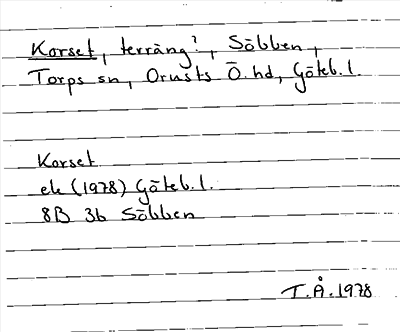 Korset, terräng?, Söbben,
Torps sn, Orusts Ö. hd, Göteb. l.
Korset
ek (1978) Göteb. l.
8B 3b Söbben
T.Å. 1978